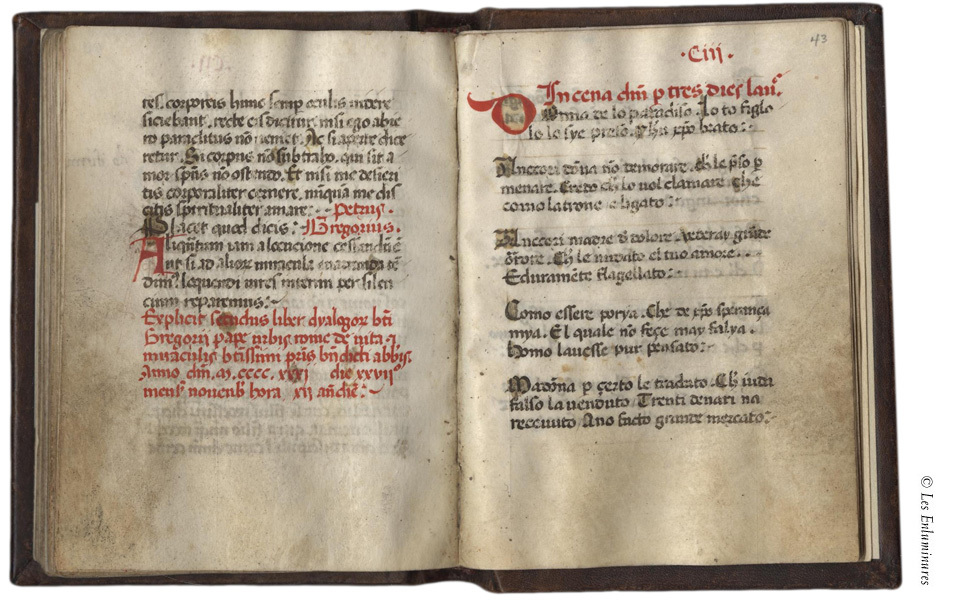 tes. corporeis hunc semp oculis videre
siciebant. recte eis dicitur. nisi ego abie
ro paraclitus nō veniet. Ac si aperte dice
retur. Si corpus nō subtraho. qui sit a
mor spūs nō ostendo. Et nisi me desieri
tis corporaliter cernere. nūquā me dis
citis spiritualiter amare. Petrus.
Placet quod dicis: Gregorius.
Aliqntum iam a locucione cessandū ē
Aut si ad alior miracula tē
dim? loquendi vires interim per silen
cium reparemus:
Explicit secūdus liber dyalogor bti
Gregorii pape urbis rome de vita ⁊
miraculis btissimi pris bn̄dicti abbis.
Anno dm̄. M. cccc. xxxi die xxvii
mens novenb hora xii an̄ diē.
43
.Ciij.
In cena dm̄ p tres dies lau.
Donna de lo paradiso. Lo to figlo
lo le sye preso. Chū xp̄o beato:
Anccori dōna nō demorare. Ch̄ le pso p
menare. Creto ch̄ lo vol clamare. Che
como latrone e ligato:
Anccori madre d dolore. Vederay grāde
orrore. Ch̄ le nudato el tuo amore.
E duramēte flagellato:
Como essere porya. Che de xp̄o sperança
mya. El quale nō feçe may falya.
Homo lavesse pur pensato:
Madōna p çerto le tradato. Ch̄ iuda
falso la venduto. Trenti denari na
recevuto. Ano facto grande mercato:
© Les Enluminures